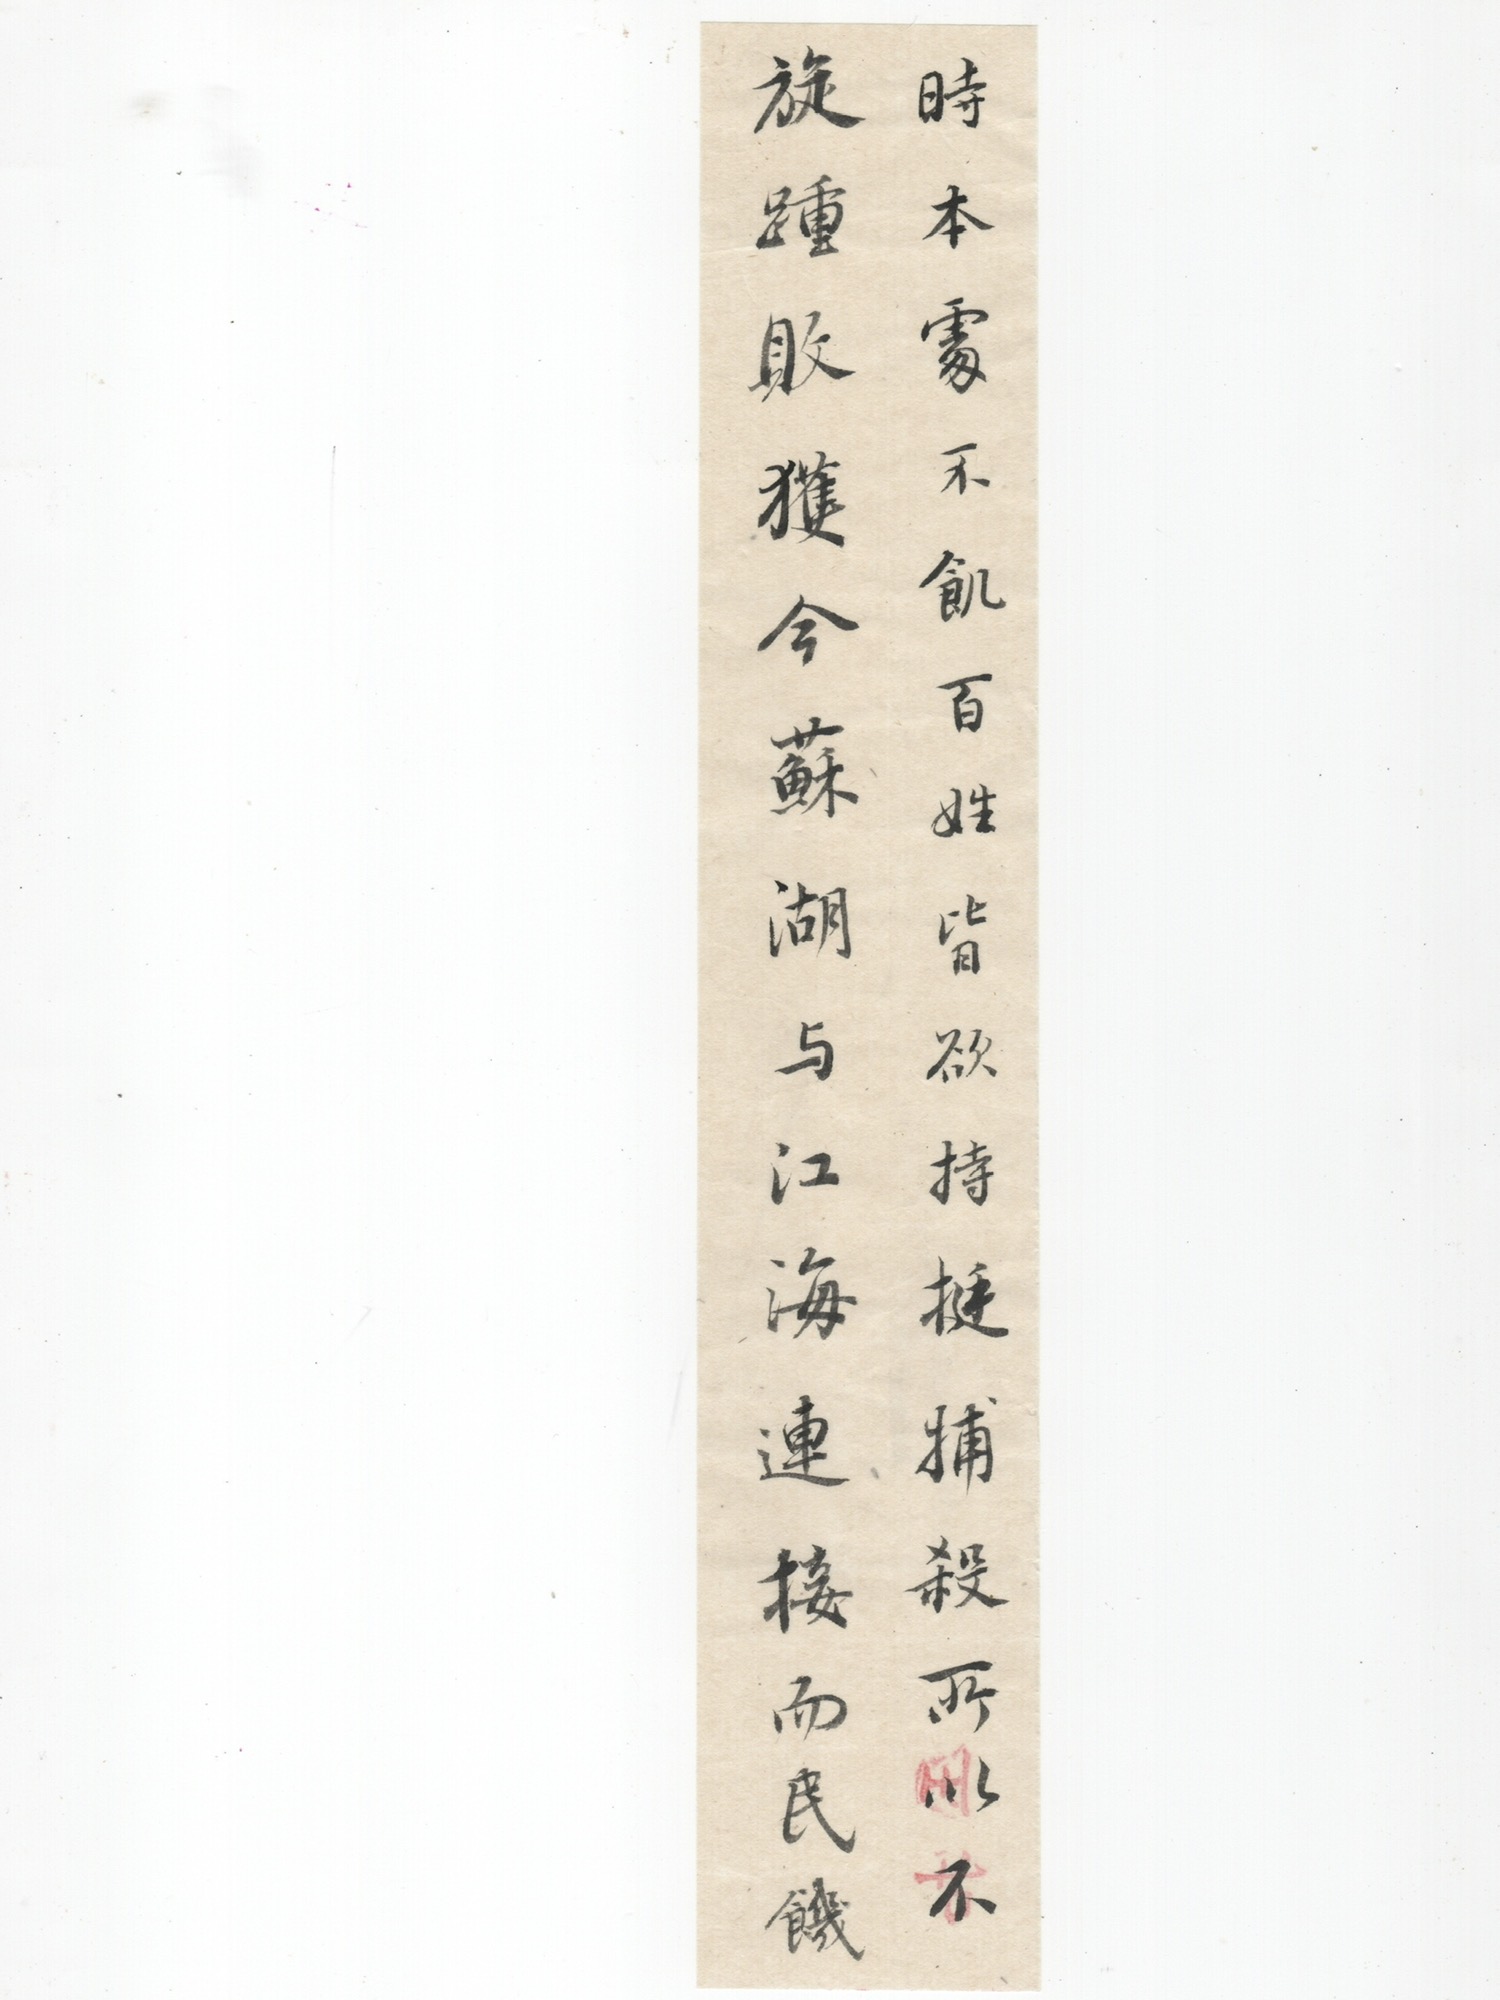 時本處不飢百姓皆欲持挺捕殺所以不
旋踵敗獲今蘇湖与江海連接而民饑